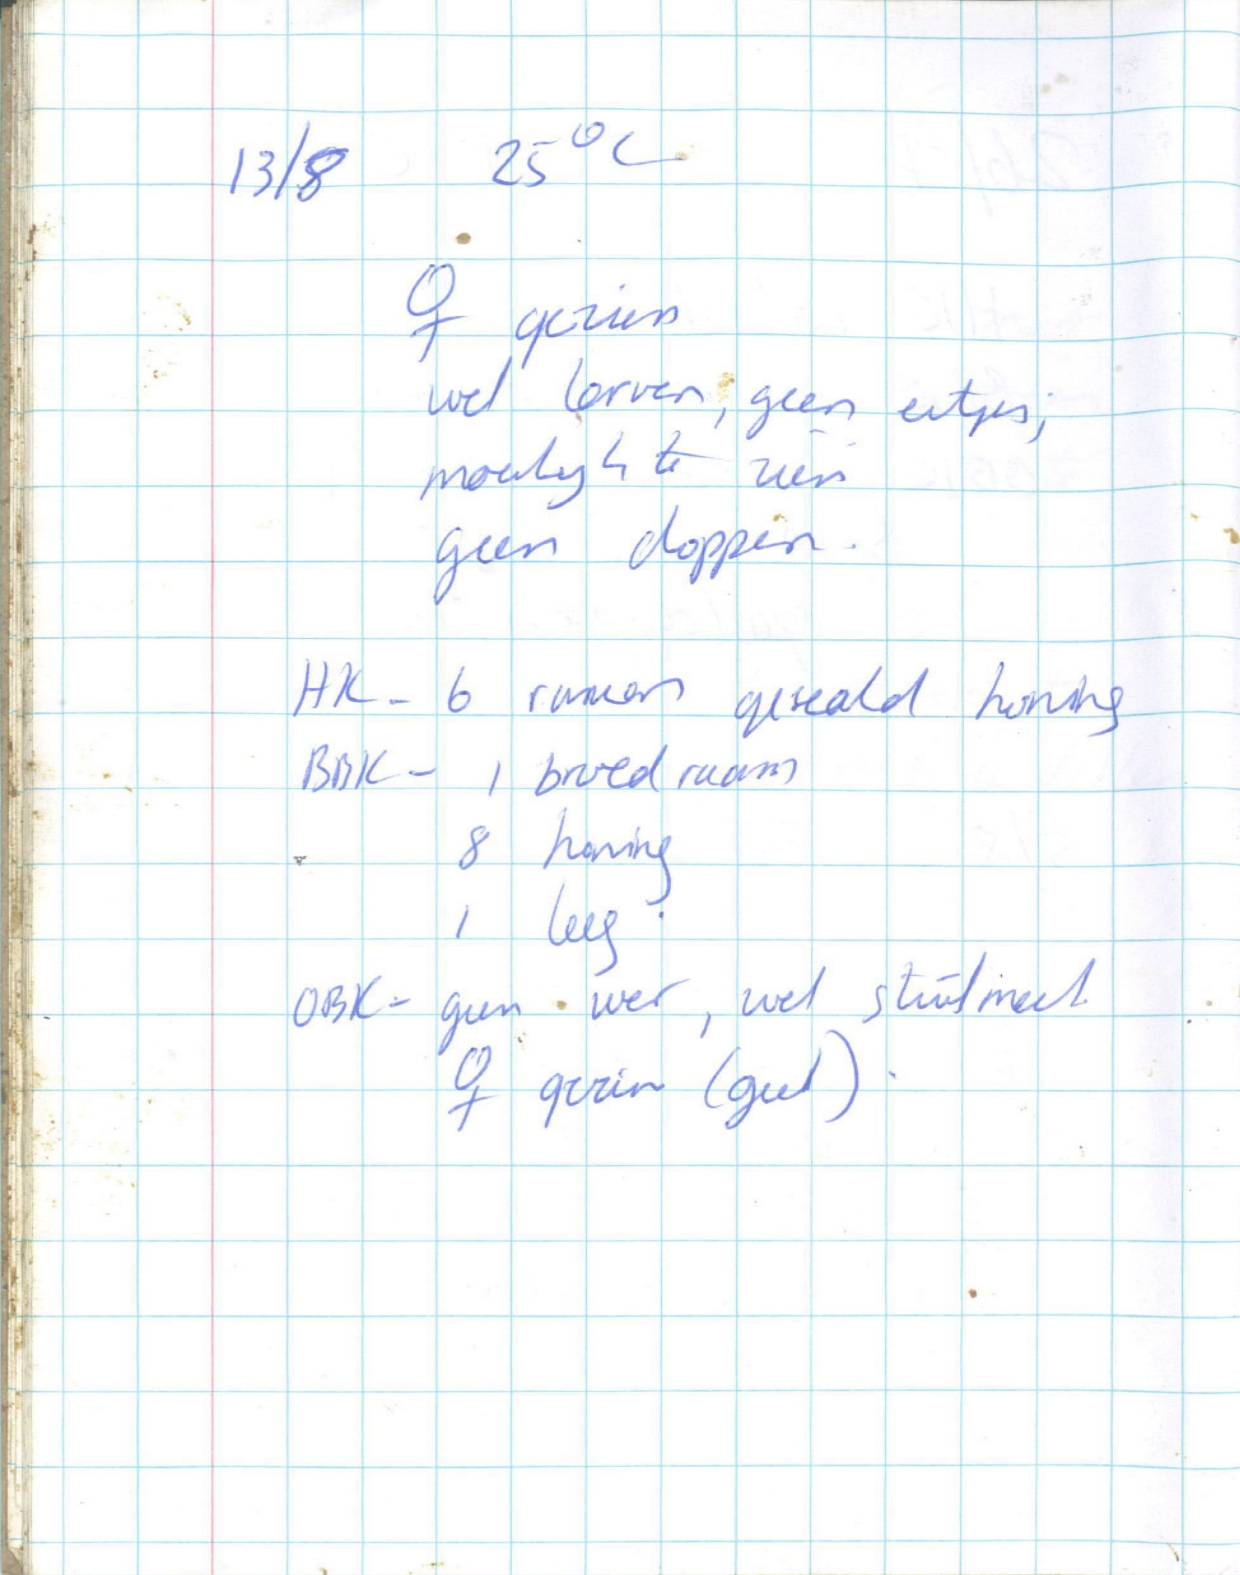 13/8 25°C
♀ gezien
wel larven, geen eitjes;
moeilijk te zien
geen doppen.
HK - 6 ramen gezeald honing
BBK - 1 broedraam
8 honing
1 leeg.
OBK - geen , wel stuifmeel
♀ gezien (geel).